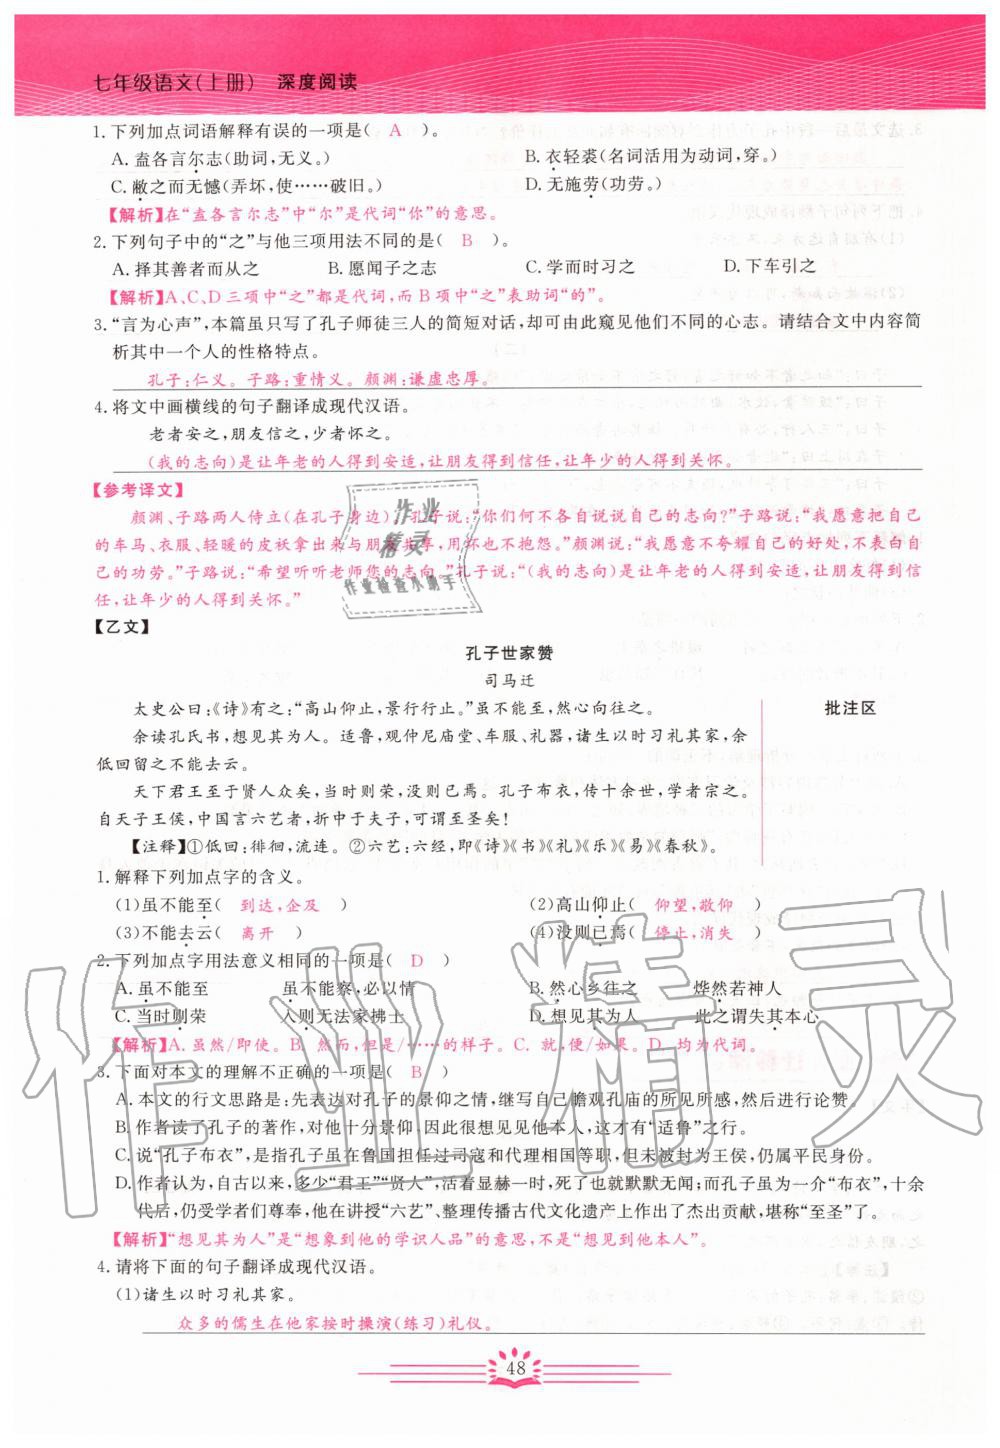 七年级语文(上册) 深度阅读
1.下列加点词语解释有误的一项是( A )。
A.盍各言尔志(助词,无义。) B.衣轻裘(名词活用为动词,穿。)
C.敝之而无憾(弄坏,使……破旧。) D.无施劳(功劳。)
【解析】在“盍各言尔志”中“尔”是代词“你”的意思。
2.下列句子中的“之”与他三项用法不同的是( B )。
A.择其善者而从之 B.愿闻子之志 C.学而时习之 D.下车引之
【解析】A、C、D三项中“之”都是代词,而B项中“之”表助词“的”。
3.“言为心声”,本篇虽只写了孔子师徒三人的简短对话,却可由此窥见他们不同的心志。请结合文中内容简
析其中一个人的性格特点。
孔子:仁义。子路:重情义。颜渊:谦虚忠厚。
4.将文中画横线的句子翻译成现代汉语。
老者安之,朋友信之,少者怀之。
(我的志向)是让年老的人得到安适,让朋友得到信任,让年少的人得到关怀。
【参考译文】
颜渊、子路两人侍立(在孔子身边),孔子说:“你们何不各自说说自己的志向?”子路说:“我愿意把自己
的车马、衣服、轻暖的皮袄拿出来与朋友共享,用坏也不抱怨。”颜渊说:“我愿意不夸耀自己的好处,不表白自
己的功劳。”子路说:“希望听听老师您的志向。”孔子说:“(我的志向)是让年老的人得到安适,让朋友得到信
任,让年少的人得到关怀。”
【乙文】
孔子世家赞
司马迁
太史公曰:《诗》有之:“高山仰止,景行行止。”虽不能至,然心向往之。
批注区
余读孔氏书,想见其为人。适鲁,观仲尼庙堂、车服、礼器,诸生以时习礼其家,余
低回留之不能去云。
天下君王至于贤人众矣,当时则荣,没则已焉。孔子布衣,传十余世,学者宗之。
自天子王侯,中国言六艺者,折中于夫子,可谓至圣矣!
【注释】①低回:徘徊,流连。②六艺:六经,即《诗》《书》《礼》《乐》《易》《春秋》。
1.解释下列加点字的含义。
(1)虽不能至( 到达,企及 ) (2)高山仰止( 仰望,敬仰 )
(3)不能去云( 离开 ) (4)没则已焉( 停止,消失 )
2.下列加点字用法意义相同的一项是( D )
A.虽不能至 虽不能察,必以情 B.然心乡往之 烨然若神人
C.当时则荣 入则无法家拂士 D.想见其为人 此之谓失其本心
【解析】A.虽然/即使。B.然而,但是/……的样子。C.就,便/如果。D.均为代词。
3.下面对本文的理解不正确的一项是( B )
A.本文的行文思路是:先表达对孔子的景仰之情,继写自己瞻观孔庙的所见所感,然后进行论赞
B.作者读了孔子的著作,对他十分景仰,因此很想见见他本人,这才有“适鲁”之行。
C.说“孔子布衣”,是指孔子虽在鲁国担任过司寇和代理宰相国等职,但未被封为王侯,仍属平民身份。
D.作者认为,自古以来,多少“君王”“贤人”,活着显赫一时,死了也就默默无闻;而孔子虽为一介“布衣”,十余
代后,仍受学者们尊奉,他在讲授“六艺”、整理传播古代文化遗产上作出了杰出贡献,堪称“至圣”了。
【解析】“想见其为人”是“想象到他的学识人品”的意思,不是“想见到他本人”。
4.请将下面的句子翻译成现代汉语。
(1)诸生以时习礼其家。
众多的儒生在他家按时操演(练习)礼仪。
48
作业
精灵
作业检查小助手
作业精灵